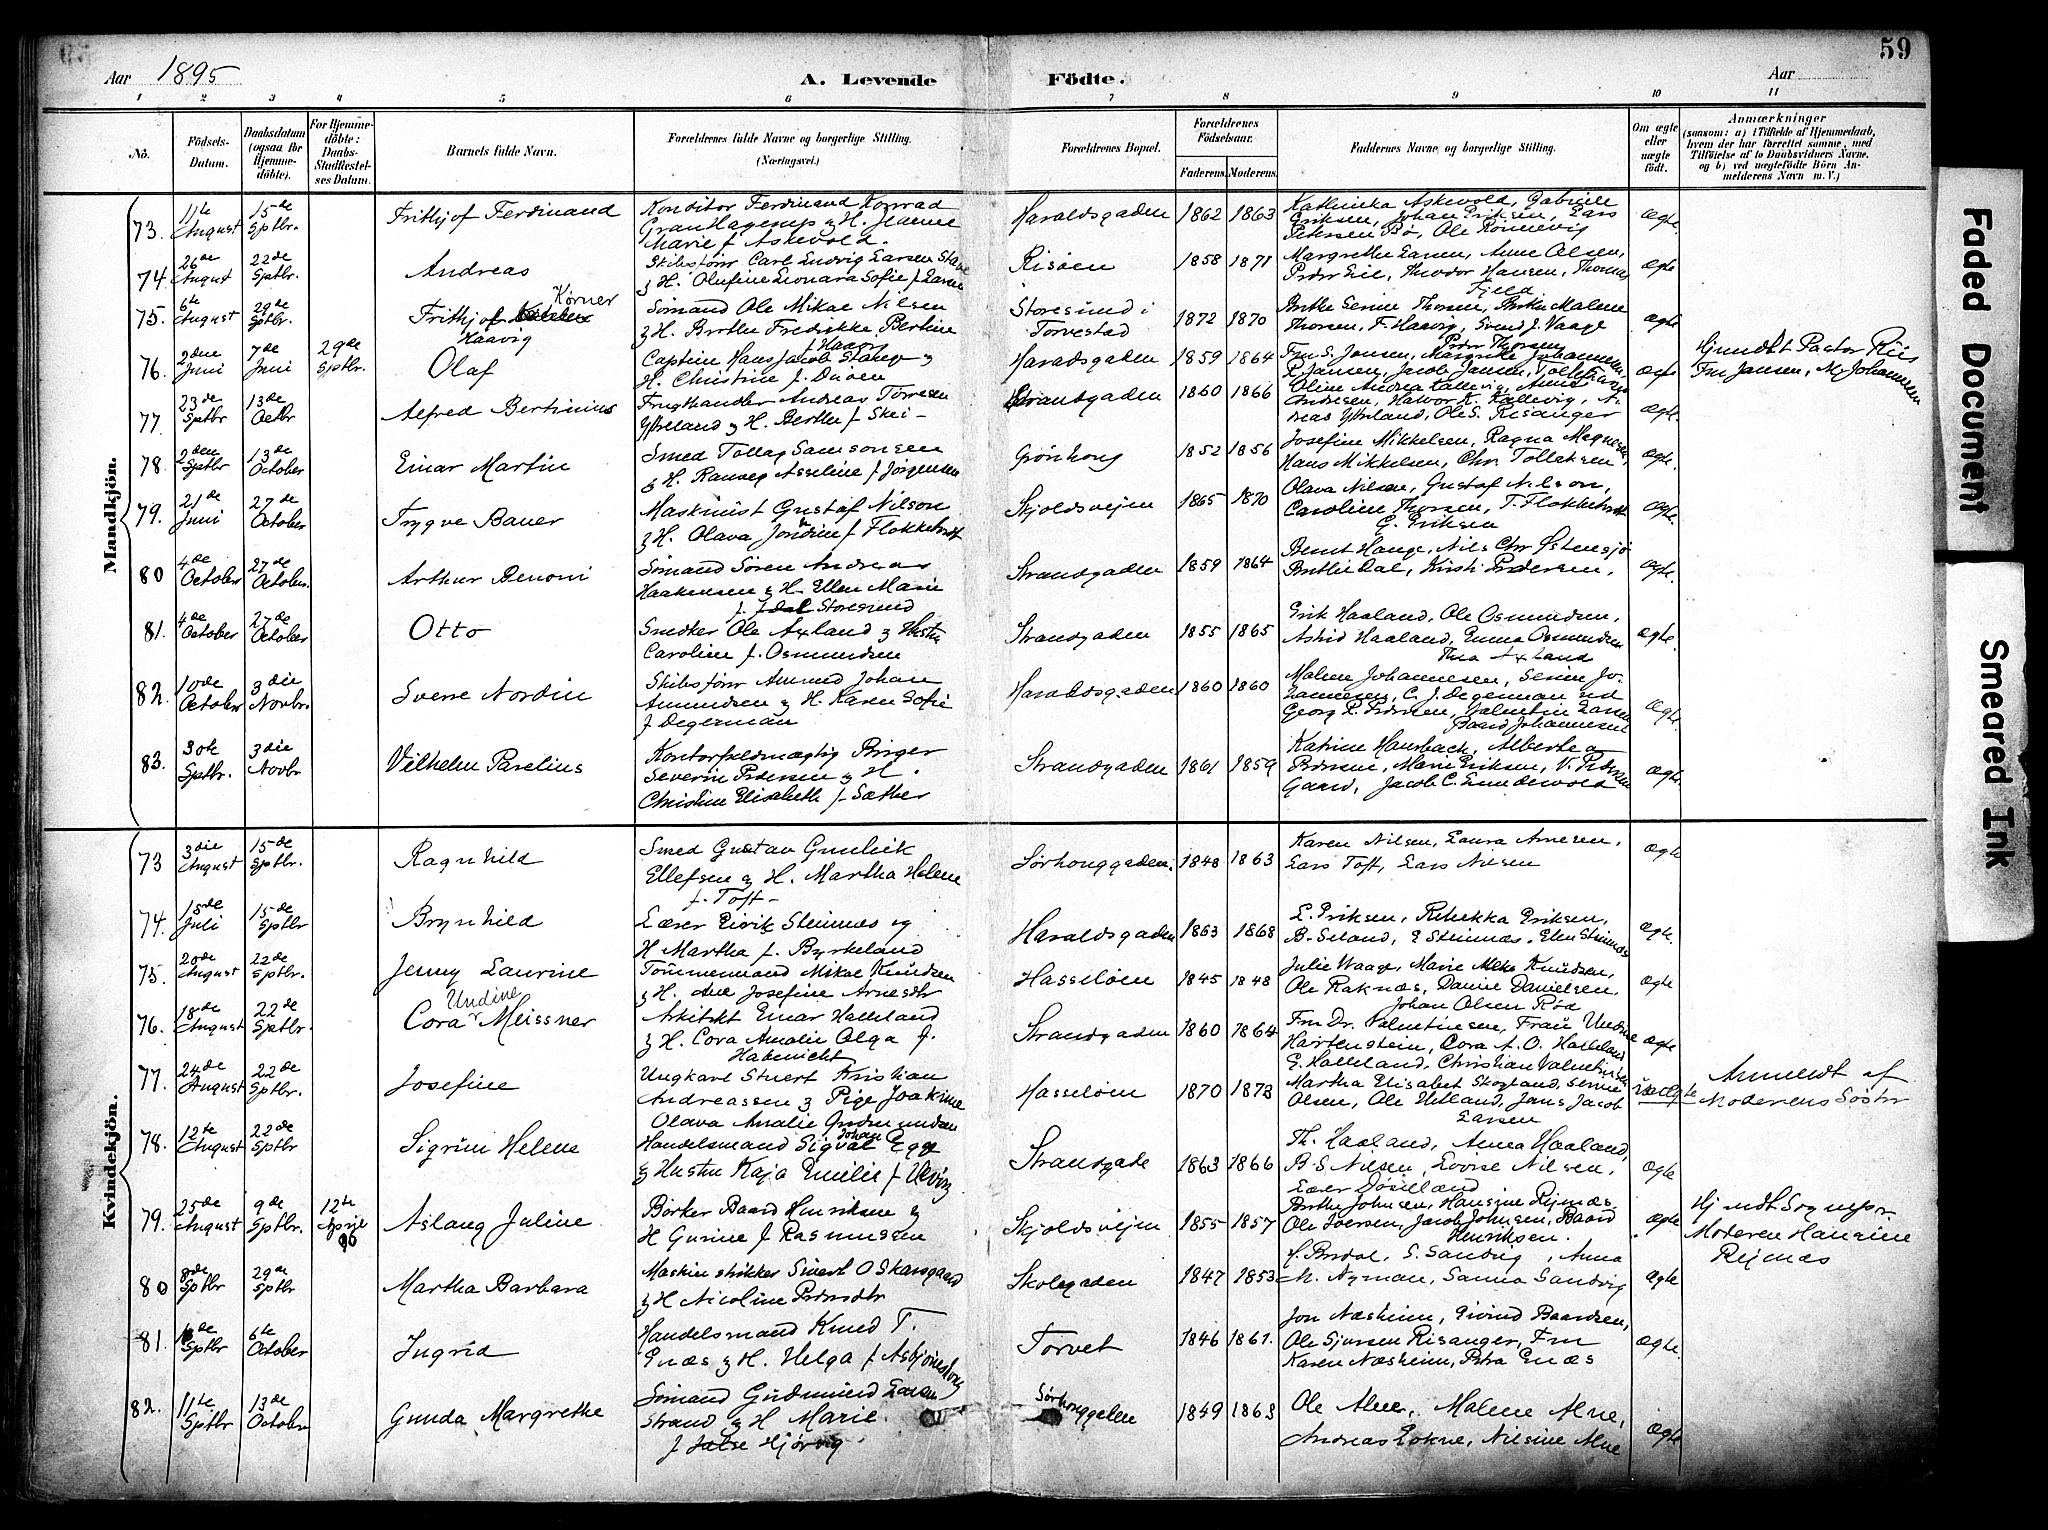 59
Aar 1895
A. Levende
Födte.
Aar
1 2 3 4 5 6 7 8 9 10 11
No.
Födsels-Datum.
Daabsdatum (ogsaa for Hjemme-döbte).
For Hjemme-döbte: Daabs-Stadfæstel-ses Datum.
Barnets fulde Navn.
Forældrenes fulde Navne og borgerlige Stilling. (Næringsvei.)
Forældrenes Bopæl.
Forældrenes Födselsaar.
Faderens. Moderens.
Faddernes Navne og borgerlige Stilling.
Om ægte eller uægte födt.
Anmærkninger
(saasom: a) i Tilfælde af Hjemmedaab, hvem der har forrettet samme, med Tilföielse af to Daabsvidners Navne, og b) ved uægtefödte Börn An-melderens Navn m. V.)
Mandkjön.
73. 11te August 15de Sptbr. Frithjof Ferdinand
Konditor Ferdinand Konrad
Gran Hagerup & H. Hanne
Marie f. Askevold.
Haraldsgaden 1862 1863
Kathinka Askevold, Gabriele
Eriksen, Johan Eriksen, Lars
Petersen Bö, Ole Rönnevig
ægte.
74. 26de August 22de Sptbr. Andreas
Skibsförer Carl Ludvig Larsen
& H. Olufine Leonara Sofie f. Larsen
Risöen 1858 1871
Margrethe Larsen, Anne Olsen,
Peder Lie, Theodor Hansen, Thomas
Fjeld
ægte
75. 6te August 29de Sptbr. Frithjof Körner Haavig
Sömand Ole Mikae Nilsen
& H. Berthe Fredrikke Bertine
f. Haavig
Storesund i Torvestad 1872 1870
Thorsen, F. Haavig, Svend J. Vaage
Peder Thorsen
ægte
76. 2den Juni 7de Juni 29de Sptbr. Olaf
Captein Hans Jacob Stange &
H. Christine f. Duöen
Haraldsgaden 1859 1864
Fru S. Jansen, Margrethe Johannesen,
R. Jansen, Jacob Jansen,
ægte
Hjemdbt Pastor Riis
Fru Jansen, M. Johannesen
77. 23de Sptbr 13de Octbr Alfred Bertinius
Frugthandler Andreas Torresen
Ytreland & H. Berthe f. Skei -
Strandgaden 1860 1866
Oline Andrea Kallevig, Anna
Andresen, Halvor K. Kallevig, An-
dreas Ytreland, Ole S. Risanger
ægte.
78. 2den Sptbr 13de October Einar Martin
Smed Tollag Samsonsen
& H. Ranveg Asseline f. Jörgensen
Grönhaug 1852 1856
Josefine Mikkelsen, Ragna Magnesen,
Hans Mikkelsen, Chr. Tollaksen
ægte.
79. 21de Juni 27de October Trygve Bauer
Maskinist Gustaf Nilson
& H. Olava Jondine f. Flokketvedt
Skjoldsvejen 1865 1870
Olava Nilsen, Gustaf Nilson,
Caroline Thorsen, T. Flokketvedt
G. Eriksen
ægte.
80 4de October 27de October. Arthur Benoni
Sömand Sören Andreas
Haakensen & H. Ellen Marie
f. Storesund
Strandgaden 1859 1864
Bernt Hauge, Nils Chr Östensjö
Berthe Dal, Kirsti Pedersen,
ægte.
81. 4de October 27de October Otto
Snedker Ole Axland & Hustru
Caroline f. Osmundsen
Strandgaden 1855 1865
Erik Haaland, Ole Osmundsen,
Astrid Haaland, Emma Osmundsen
Thea Axland
ægte.
82. 10de October 3die Novbr. Sverre Nordin
Skibsförer Amund Johan
Amundsen & H. Karen Sofie
f. Degerman
Haraldsgaden 1860 1860
Malene Johannesen, Serine Jo-
hannesen, C. J. Degerman ved
Georg R. Pedersen, Valentin Larsen
Baard Johannesen
ægte.
83. 30te Sptbr. 3die Novbr Vilhelm Parelius
Kontorfuldmægtig Birger
Severin Pedersen & H.
Christine Elisabeth f. Sæther
Strandgaden 1861 1859
Katrine Haurback, Alberthea
Pedersen, Marie Eriksen, V. Pedersen
Gaard, Jacob C. Lundevold
ægte.
Kvindekjön.
73 3die August 15de Sptbr. Ragnhild
Smed Gustav Gunlick
Ellefsen & H. Martha Helene
f. Toft -
Sörhauggaden. 1848 1863
Karen Nilsen, Laura Arnesen,
Lars Toft, Lars Nilsen
ægte
74. 18de Juli 15de Sptbr Brynhild
Lærer Eirik Steinnæs og
H Martha f. Byrkeland
Haraldsgaden 1863 1868
L. Eriksen, Rebekka Eriksen,
B. Seland, E Steinnæs. Ellen Steinnæs
ægte.
75. 20de August 22de Sptbr. Jenny Laurine
Tömmermand Mikae Knudsen
& H. Ane Josefine Arnesdtr
Hasselöen 1845 1848
Julie Waage, Marie Knudsen,
Ole Raknæs, Daniel Danielsen,
Johan Olsen Röd
ægte
76. 18de August 22de Sptbr. Cora Undine Meissner
Arkitekt Einar Halleland
& H. Cora Amalie Olga f.
Habenicht
Strandgaden 1860 1864
Fru Dr. Valentinsen, Frau Undine
Hartenstein, Cora A. O. Halleland
E. Halleland, Christian Valentinsen
ægte
77. 24de August 22de Sptbr. Josefine
Ungkarl Stuert Kristian
Andreassen & Pige Joakime
Olava Amalie Gudmundsen
Hasselöen 1870 1873
Martha Elisabet Skogland, Serine
Olsen, Ole Hetland, Jans Jacob
Larsen
uægte
Anmeldt af
Moderens Söster
78. 12te August 22de Sptbr Sigrun Helene
Handelsmand Sigval Johan Egge
& Hustru Kaja Emilie f. Ulvöy
Strandgade 1863 1866
Th. Haaland, Anna Haaland,
B. S. Nilsen, Lovise Nilsen,
Lærer Dössland
ægte
79. 25de August 9de Sptbr. 12te April 96 Aslaug Juline
Bödker Baard Henriksen &
H Gurine f Rasmussen
Skjoldsvejen 1855 1857
Berthe Johnsen, Hansine Rejmæs
Ole Iversen, Jacob Johnsen, Baard
Henriksen.
ægte
Hjemdbt Sognepr
Moderen Hansine
Rejmæs
80 8de Sptbr 29de Sptbr Martha Barbara
Maskinstikker Sivert O Skarsgaard
& H Nicoline Pedersdtr
Skolegaden 1847 1853
S. Sandvig, Anna
M. Nyman, Sanna Sandvig
ægte
81. Sptbr 6te October Ingrid
Handelsmand Knud T.
Enæs & H. Helga f. Asbjörnsborg
Torvet 1846 1861.
Jon Næsheim, Eivind Baardsen,
Ole Sjursen Risanger, Fru
Karen Næsheim, Petra Enæs
ægte.
82. 11te Sptbr 13de October Gunda Margrethe
Sömand Gudmund Larsen
Strand & H Marie.
f Hjörvig
Sörhauggaden 1849 1863
Ole Alne, Malene Alne,
Andreas Lokne, Nilsine Alne
ægte
Faded Document
Smeared Ink